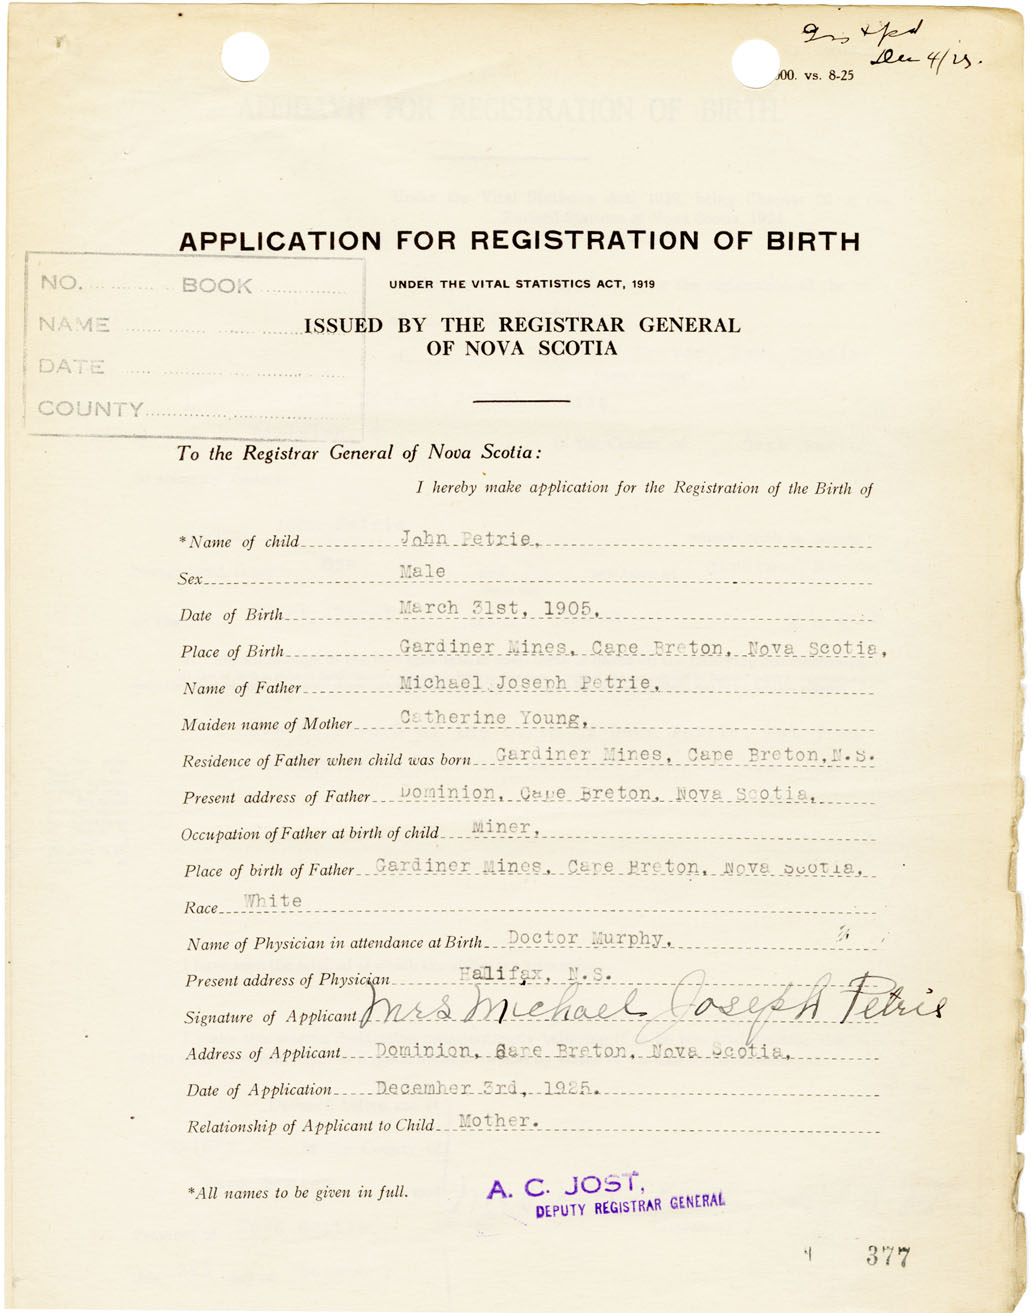 Dec 4/25.
000. vs. 8-25
APPLICATION FOR REGISTRATION OF BIRTH
UNDER THE VITAL STATISTICS ACT, 1919
ISSUED BY THE REGISTRAR GENERAL
OF NOVA SCOTIA
NO. BOOK
NAME
DATE
COUNTY
To the Registrar General of Nova Scotia:
I hereby make application for the Registration of the Birth of
*Name of child John Petrie,
Sex Male
Date of Birth March 31st, 1905,
Place of Birth Gardiner Mines, Cape Breton, Nova Scotia,
Name of Father Michael Joseph Petrie,
Maiden name of Mother Catherine Young,
Residence of Father when child was born Gardiner Mines, Cape Breton, N.S.
Present address of Father Dominion, Cape Breton, Nova Scotia,
Occupation of Father at birth of child Miner,
Place of birth of Father Gardiner Mines, Cape Breton, Nova Scotia,
Race White
Name of Physician in attendance at Birth Doctor Murphy,
Present address of Physician Halifax, N.S.
Signature of Applicant Mrs Michael Joseph Petrie
Address of Applicant Dominion, Cape Breton, Nova Scotia,
Date of Application December 3rd, 1925.
Relationship of Applicant to Child Mother.
*All names to be given in full.
A. C. JOST,
DEPUTY REGISTRAR GENERAL
377